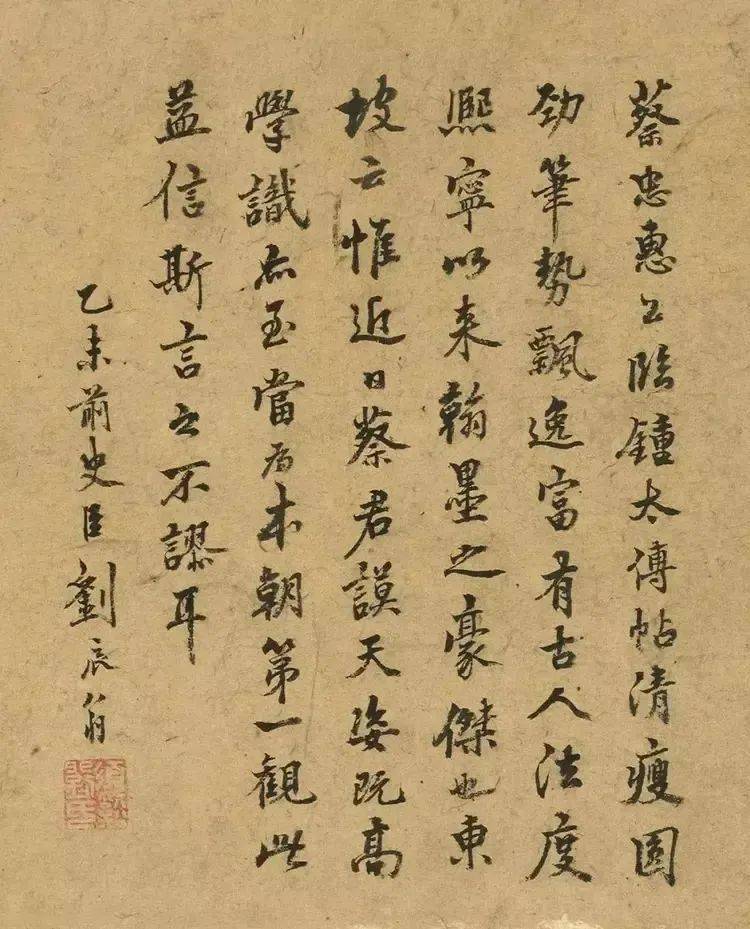 蔡忠惠公臨鐘太傅帖清瘦圓
勁筆勢飄逸富有古人法度
熙寧以来翰墨之豪傑也東
坡云惟近日蔡君謨天姿既髙
學識亦至當為本朝第一觀此
益信斯言之不謬耳
乙未前史臣劉辰翁